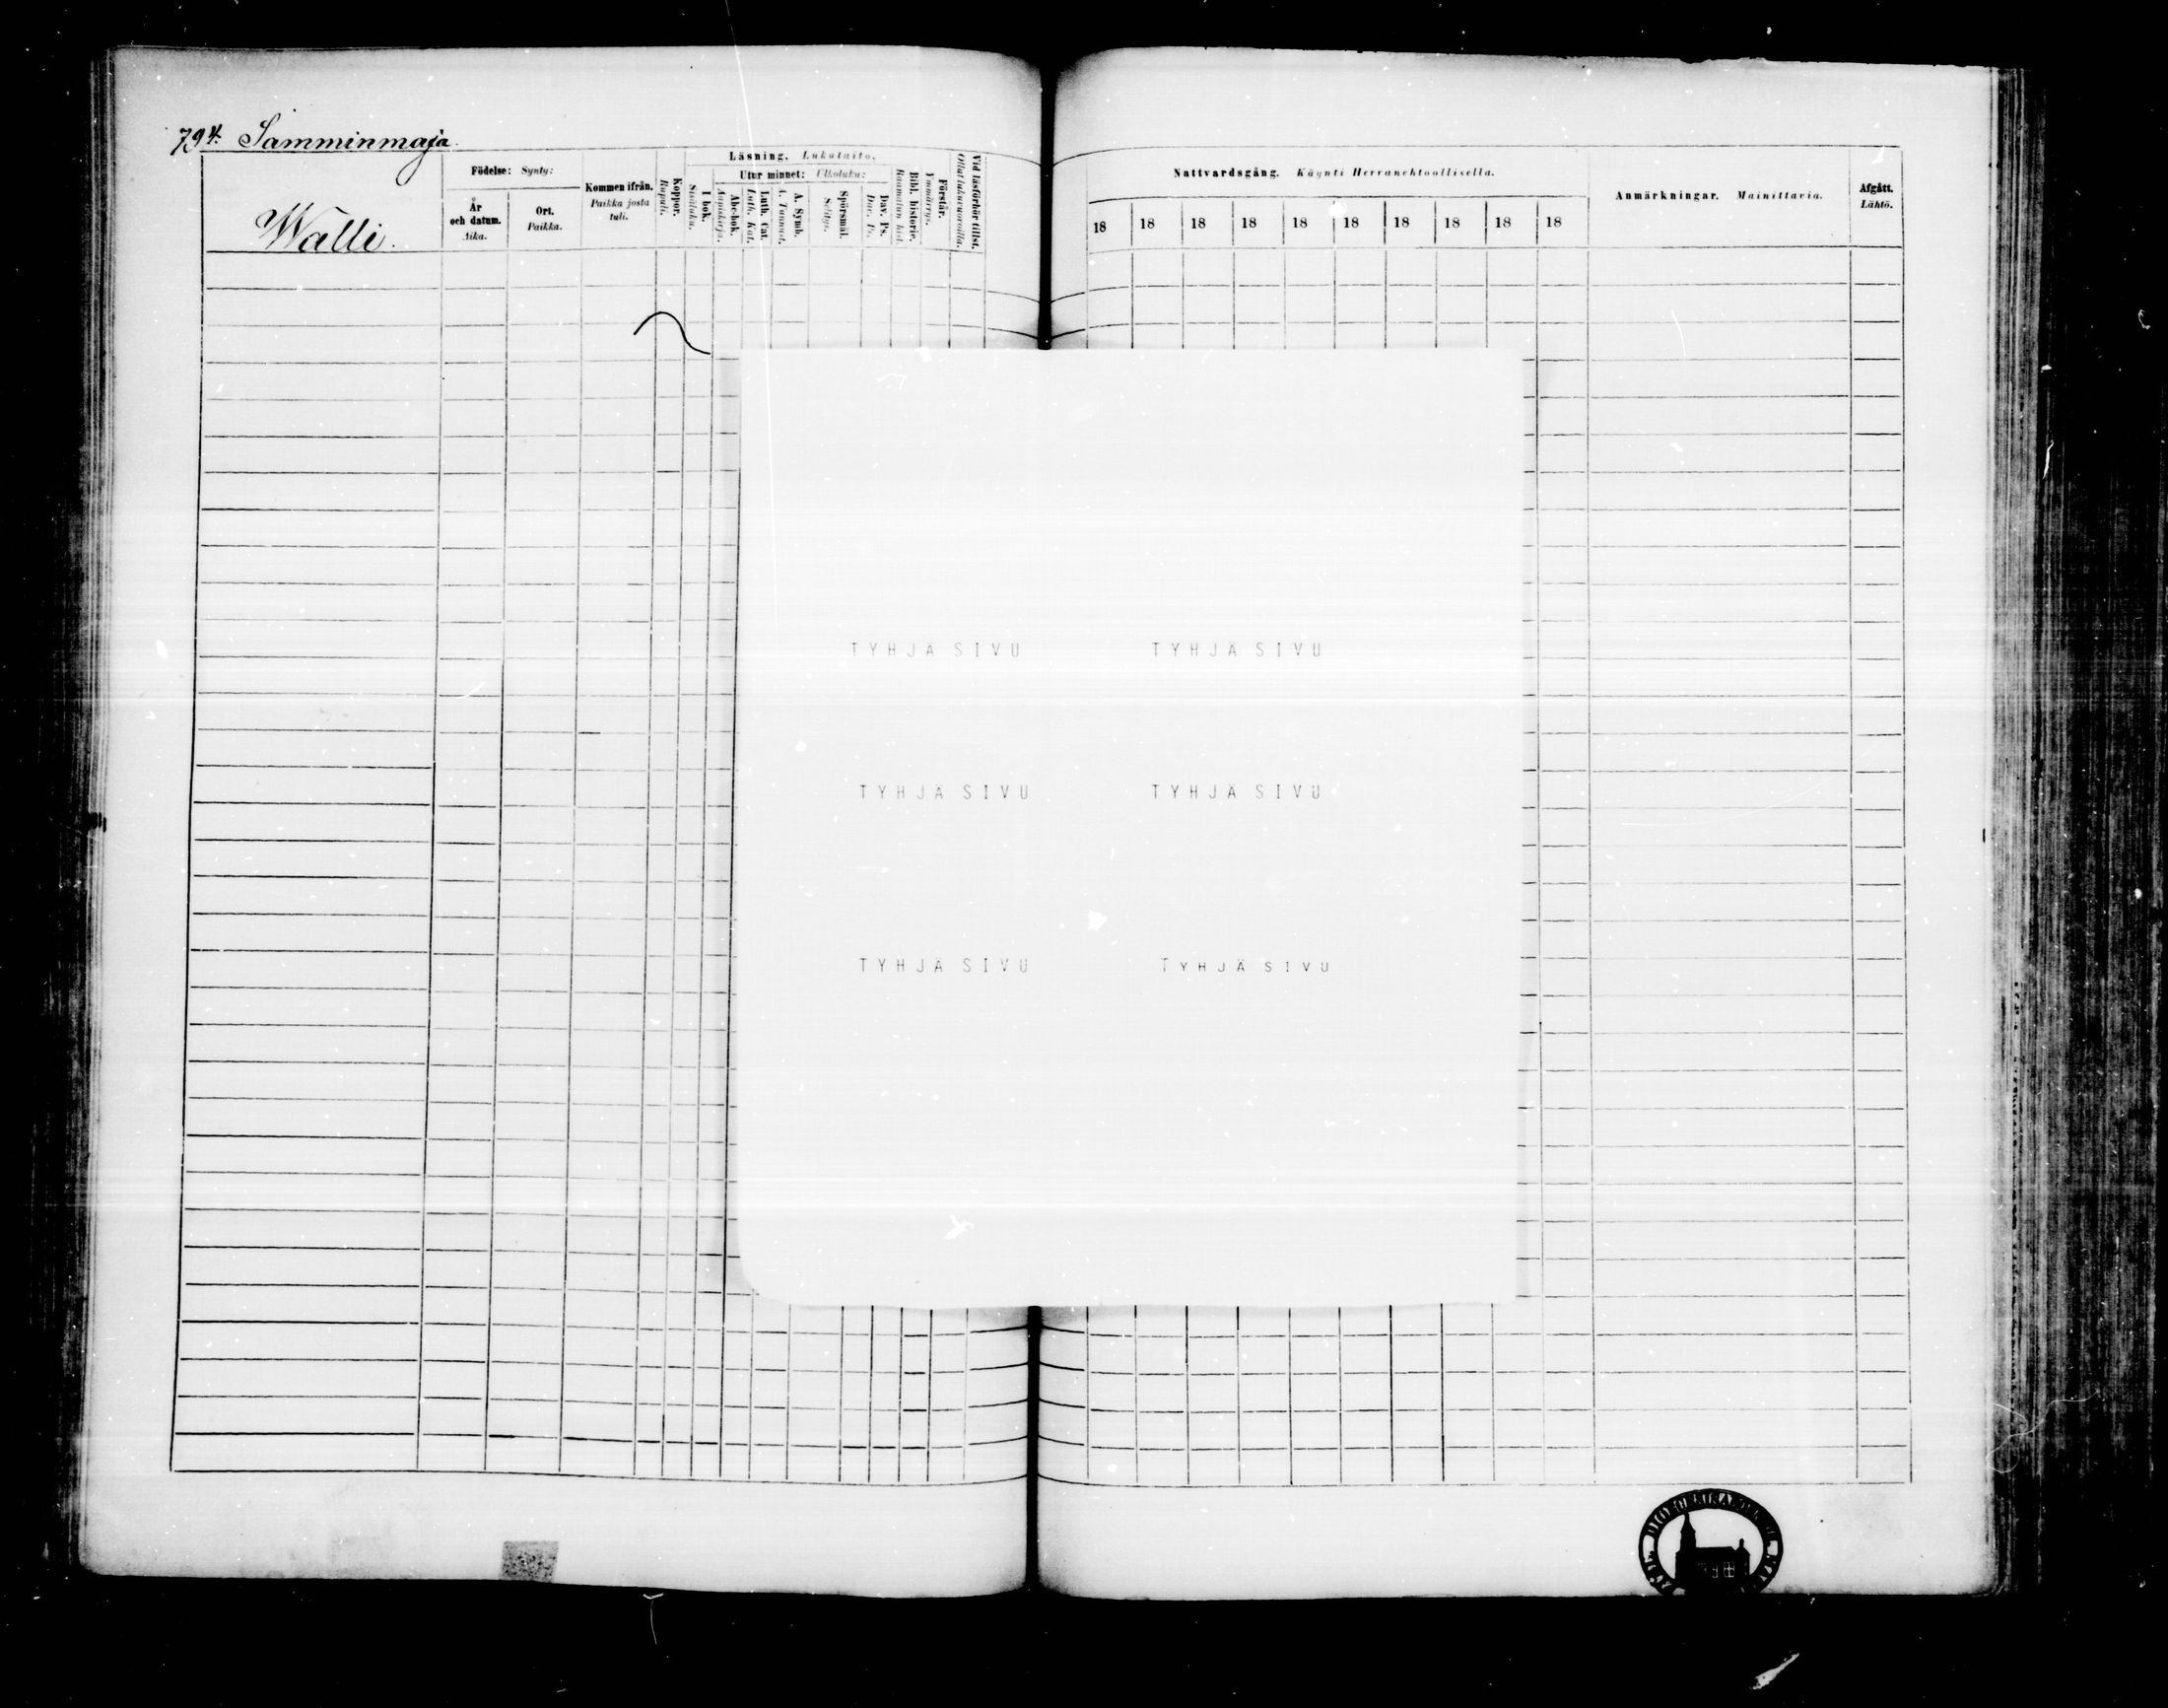 794. Samminmaja
Wälli.
Födelse: Synty:
År och datum. Aika.
Ort. Paikka.
Kommen ifrån. Paikka josta tuli.
Koppor. Rupuli.
Läsning. Lukutaito.
I bok. Sisäluku.
Utur minnet: Ulkoluku:
Abc-bok. Aapiskirja.
Luth. Cat. Luth. Kat.
A. Symb. A. Tunnust.
Spörsmål. Selitys.
Dav. Ps. Dav. Ps.
Bibl. historie. Raamatun hist.
Förstår. Ymmärrys.
Vid läsförhör tillst. Ollut lukuvuoroilla.
Nattvardsgång. Käynti Herranehtoollisella.
18 18 18 18 18 18 18 18 18 18
Anmärkningar. Mainittavia.
Afgått. Lähtö.
TYHJÄ SIVU TYHJÄ SIVU
TYHJÄ SIVU TYHJÄ SIVU
TYHJÄ SIVU TYHJÄ SIVU